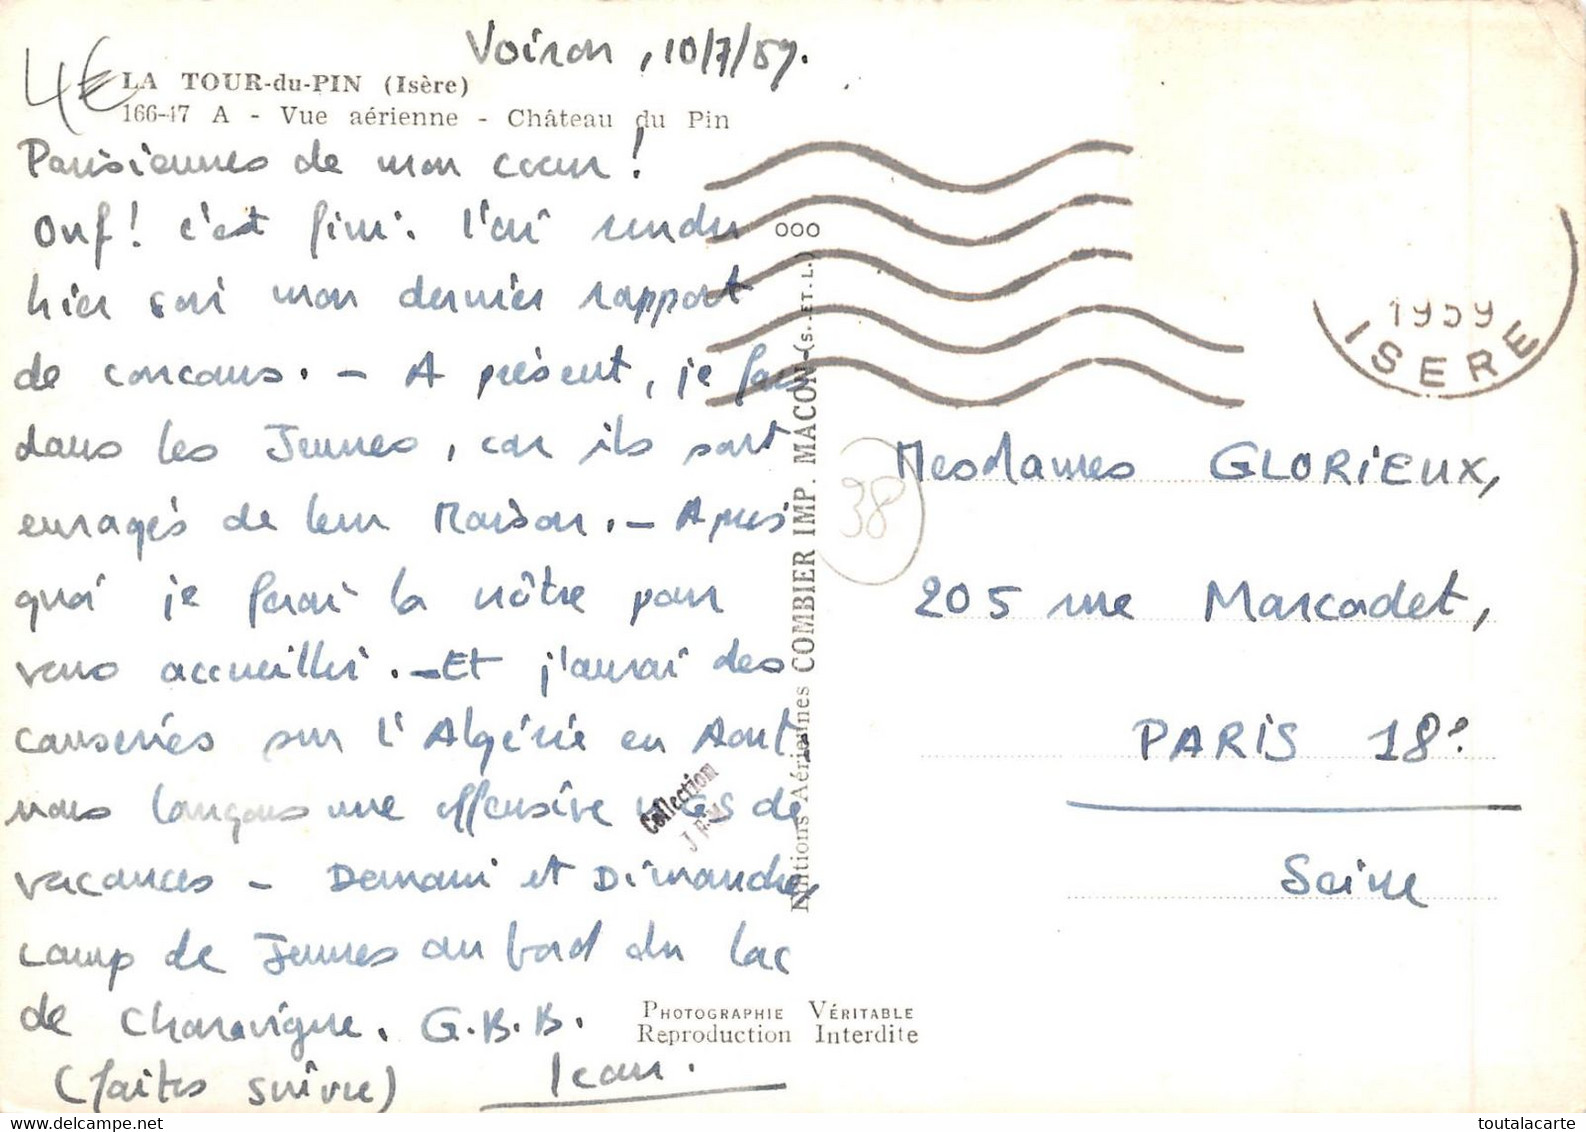 Voiron, 10/7/59.
4€
LA TOUR-du-PIN (Isère)
166-47 A - Vue aérienne - Château du Pin
Parisiennes de mon coeur!
Ouf! c'est fini. J'ai rendu
hier soir mon dernier rapport
de concours. - A présent, je fais
dans les Jeunes, car ils sont
enragés de leur Maison. - Après
quoi je ferai la nôtre pour
vous accueillir. - Et j'aurai des
causeries sur l'Algérie en Aout
nous lançons une offensive de
vacances - Demain et Dimanche,
camp de Jeunes au bord du lac
de Charavigne. G.B.B.
(faites suivre) Jean.
ooo
Editions Aériennes COMBIER IMP. MACON (S. ET L.)
Collection
1959
ISERE
38
Mesdames GLORIEUX,
205 rue Marcadet,
PARIS 18e
Seine
PHOTOGRAPHIE VÉRITABLE
Reproduction Interdite
toutalacarte